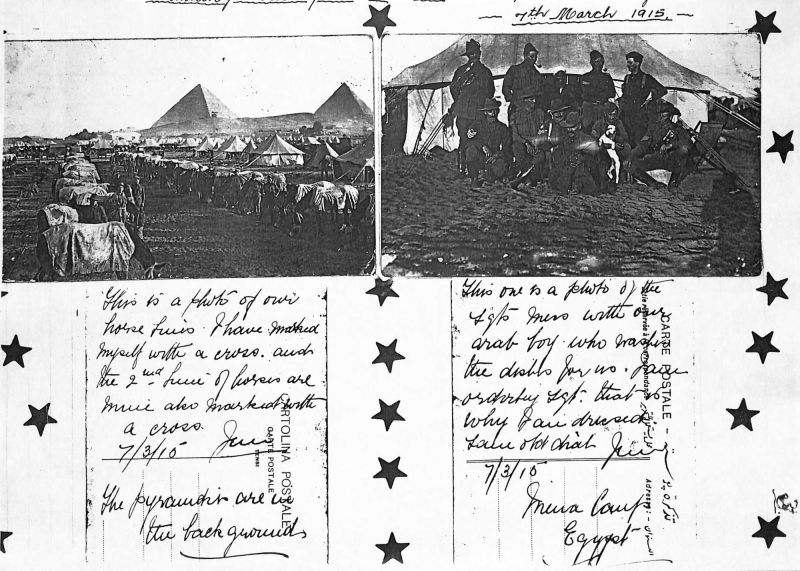 7th March 1915.
This is a photo of our
horse lines. I have marked
myself with a cross. and
the 2nd line of horses are
mine also marked with
a cross.
7/3/15 Jim
The pyramids are in
the background
CARTOLINA POSTALE
CARTE POSTALE
This one is a photo of the
Sgts Mess with our
arab boy who washes
the dishes for us. I am
orderly Sgt. that is
why I am dressed
same old chat Jim
7/3/15
Mena Camp
Egypt
CARTE POSTALE